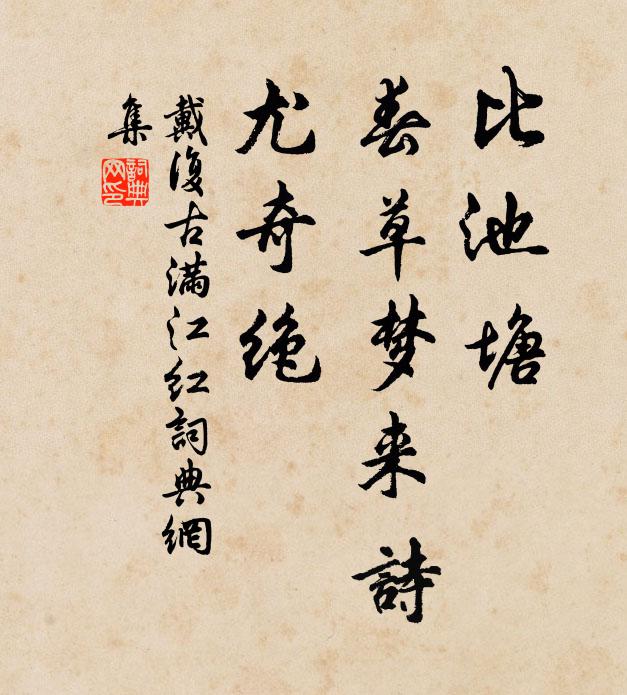 比池塘
春草梦来詩
尤奇絶
戴復古满江红詞典網
集
詞典网印